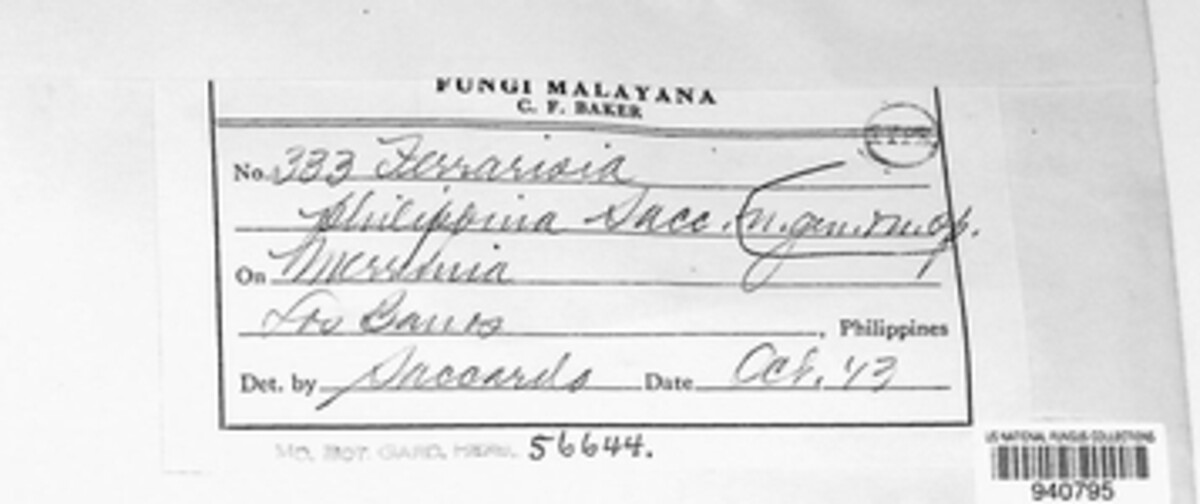 FUNGI MALAYANA
C. F. BAKER
TYPE
No. 333 Ferrarisia
philippina Sacc. (n. gen. & n. sp.
On Merremia
Los Banos, Philippines
Det. by Saccardo Date Oct. '13
MO. BOT. GARD. HERB. 56644.
US NATIONAL FUNGUS COLLECTIONS
940795